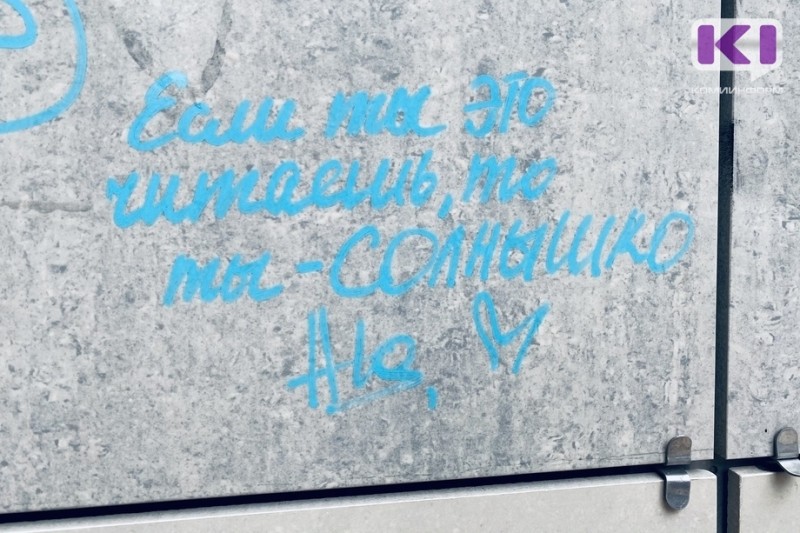 КI
КОМИИНФОРМ
Если ты это
читаешь, то
ты - СОЛНЫШКО